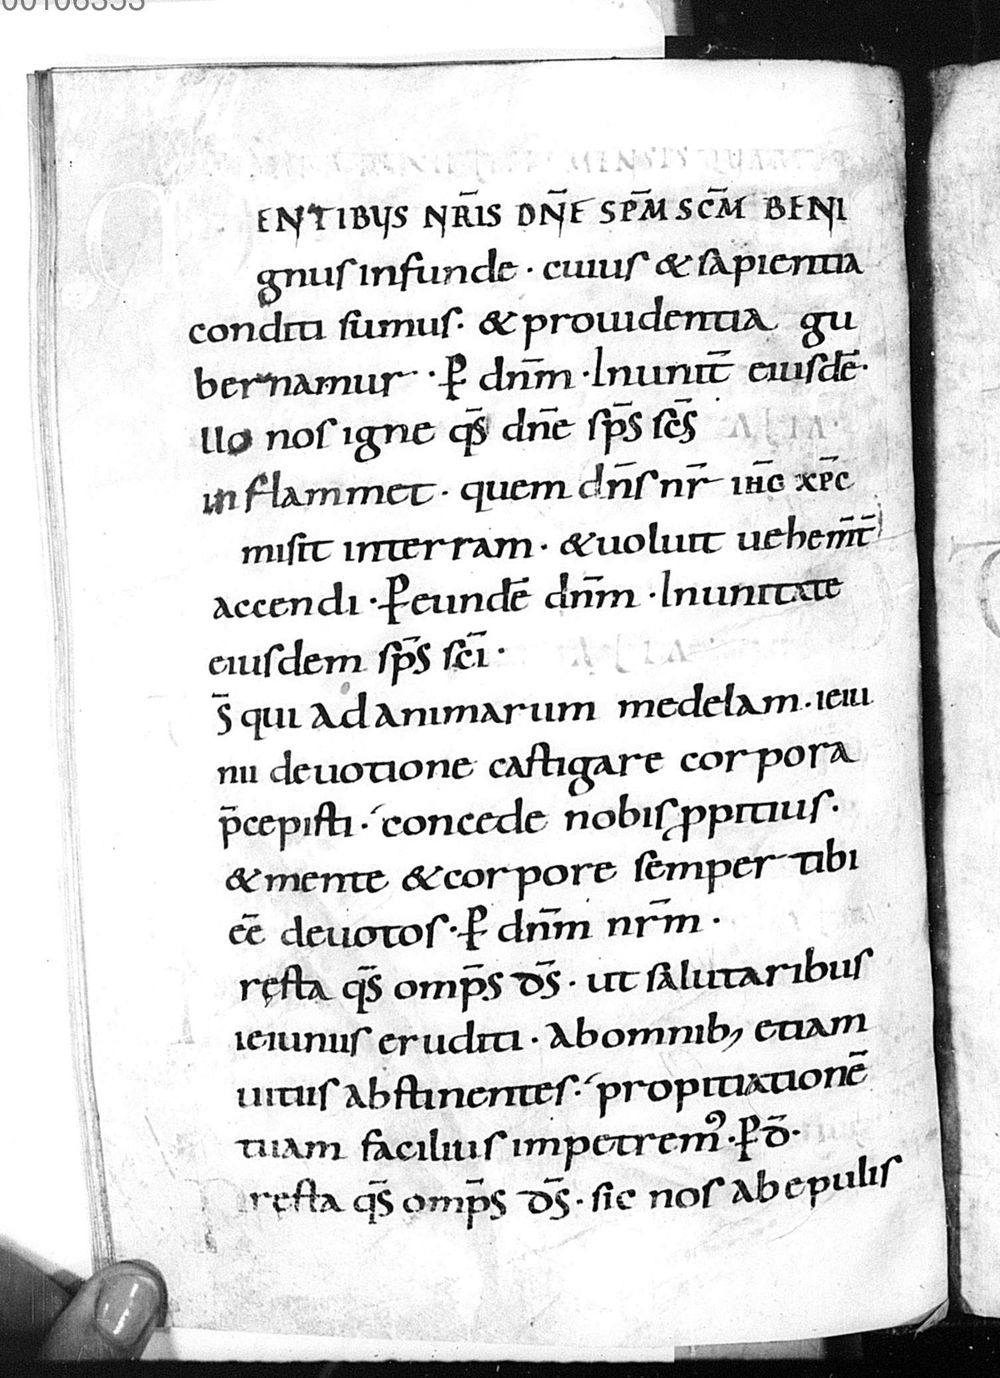 00106353
ENTIBUS NR̄IS DN̄E SPM̄ SCM̄ BENI
gnus infunde · cuius & sapientia
conditi sumus · & prouidentia gu
bernamur · ꝑ dn̄m · Inunit̄ eiusdē ·
llo nos igne qs̄ dn̄e sp̄s sc̄s
ALIA ·
inflammet · quem dn̄s nr̄ ih̄c xp̄c
misit interram · & uoluit uehem̄t̄
accendi · ꝑ eundē dn̄m · Inunitate
eiusdem sp̄s sc̄i ·
S̄ qui ad animarum medelam · ieiu
nii deuotione castigare corpora
p̄cepisti · concede nobis ꝓpitius ·
& mente & corpore semper tibi
ēē deuotos · ꝑ dn̄m nr̄m ·
ręsta qs̄ omp̄s ds̄ · ut salutaribus
ieiuniis eruditi · Abomnib; etiam
uitiis abstinentes · propitiationē
tuam facilius impetrem᷒ · ꝑ d̄ ·
ręsta qs̄ omp̄s ds̄ · sic nos abepulis